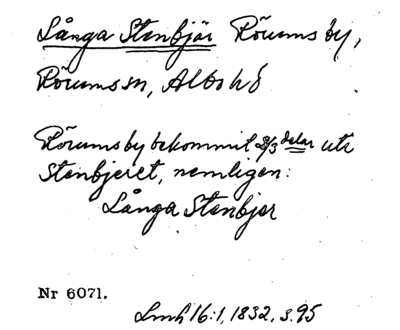 Långa Stenbjär Rörums by,
Rörums sn, Albo hd
Rörums by bekommit 2/3 delar uti
Stenbjeret, nemligen:
Långa Stenbjer
Nr 6071.
Lmh 16:1, 1832, s. 95